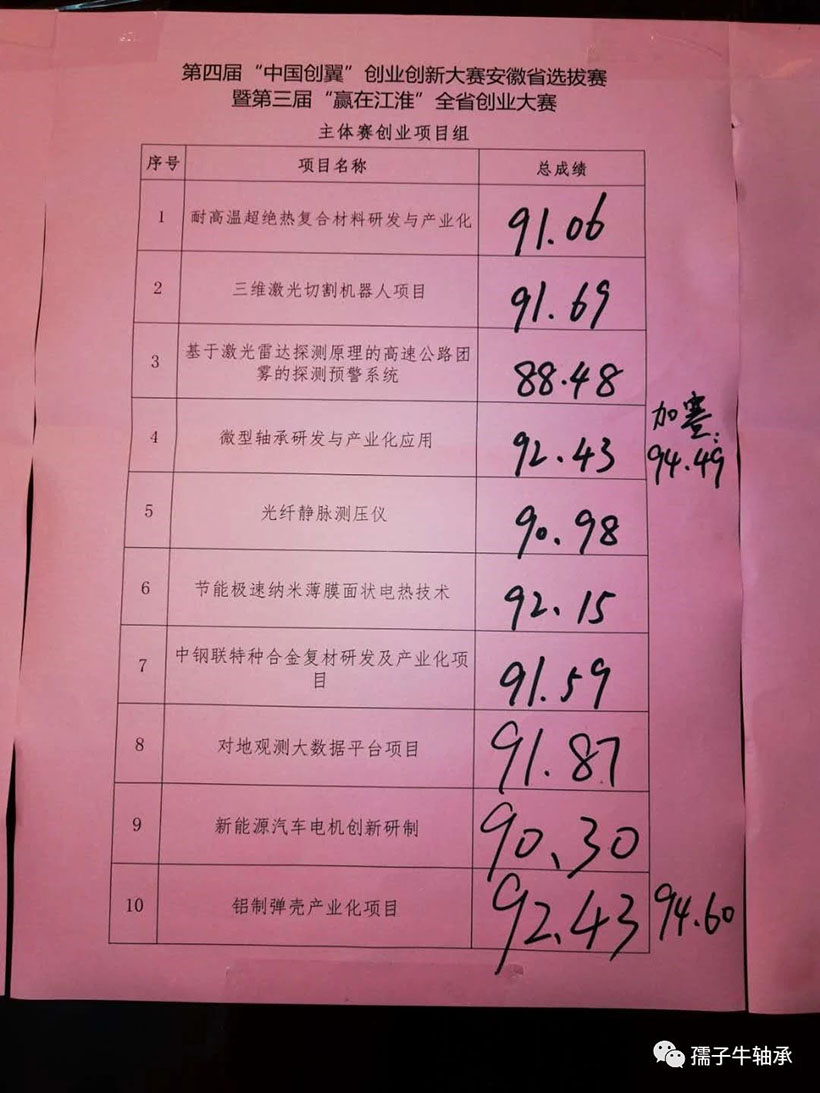 第四届“中国创翼”创业创新大赛安徽省选拔赛
暨第三届“赢在江淮”全省创业大赛
主体赛创业项目组
序号 项目名称 总成绩
1 耐高温超绝热复合材料研发与产业化 91.06
2 三维激光切割机器人项目 91.69
3 基于激光雷达探测原理的高速公路团
雾的探测预警系统 88.48
4 微型轴承研发与产业化应用 92.43 加赛:
94.49
5 光纤静脉测压仪 90.98
6 节能极速纳米薄膜面状电热技术 92.15
7 中钢联特种合金复材研发及产业化项
目 91.59
8 对地观测大数据平台项目 91.87
9 新能源汽车电机创新研制 90.30
10 铝制弹壳产业化项目 92.43 94.60
孺子牛轴承